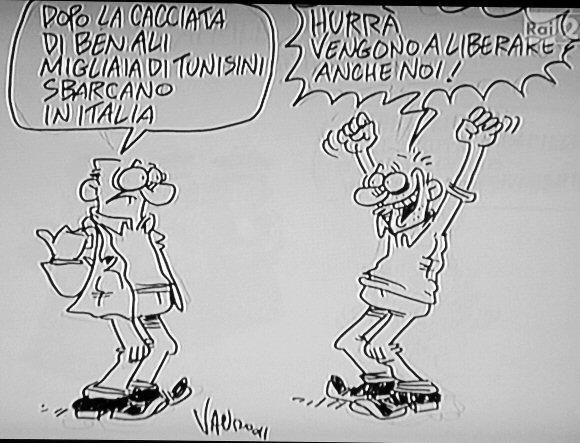 DOPO LA CACCIATA
DI BEN ALI
MIGLIAIA DI TUNISINI
SBARCANO
IN ITALIA
HURRÀ
VENGONO A LIBERARE
ANCHE NOI!
Rai 2